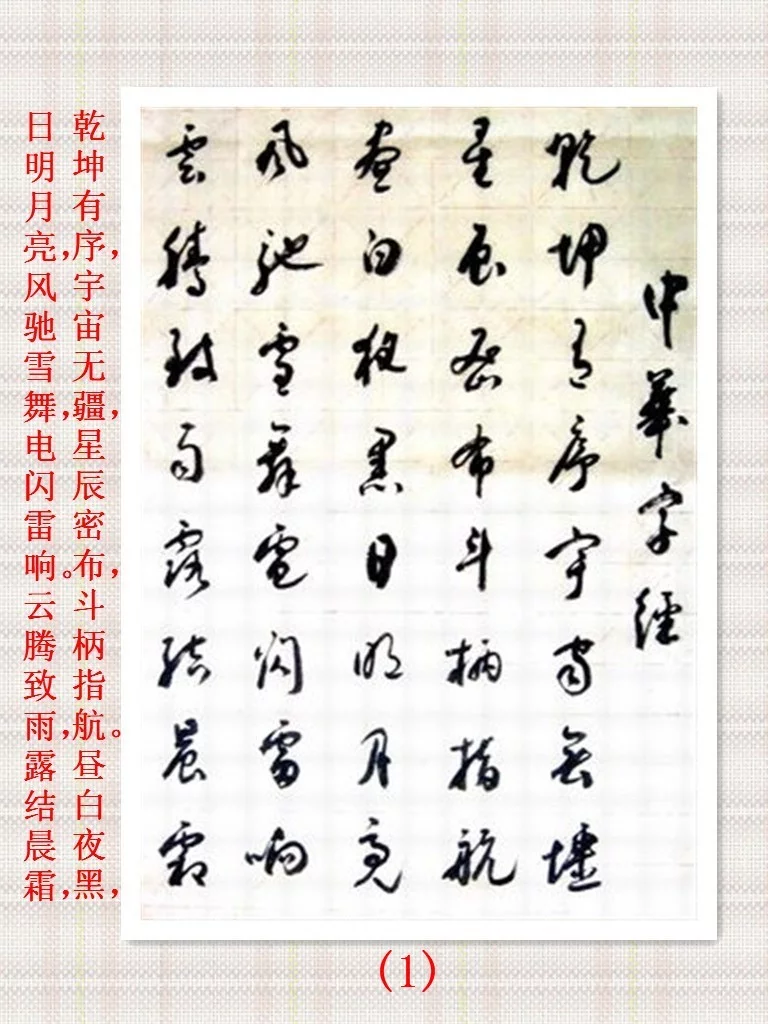 中華字經
乾坤有序宇宙無壃
星辰密布斗柄指航
晝白夜黑日明月亮
風馳雪舞電閃雷响
雲騰致雨露結晨霜
乾坤有序，宇宙无疆，星辰密布，斗柄指航。昼白夜黑，
日明月亮，风驰雪舞，电闪雷响。云腾致雨，露结晨霜，
(1)